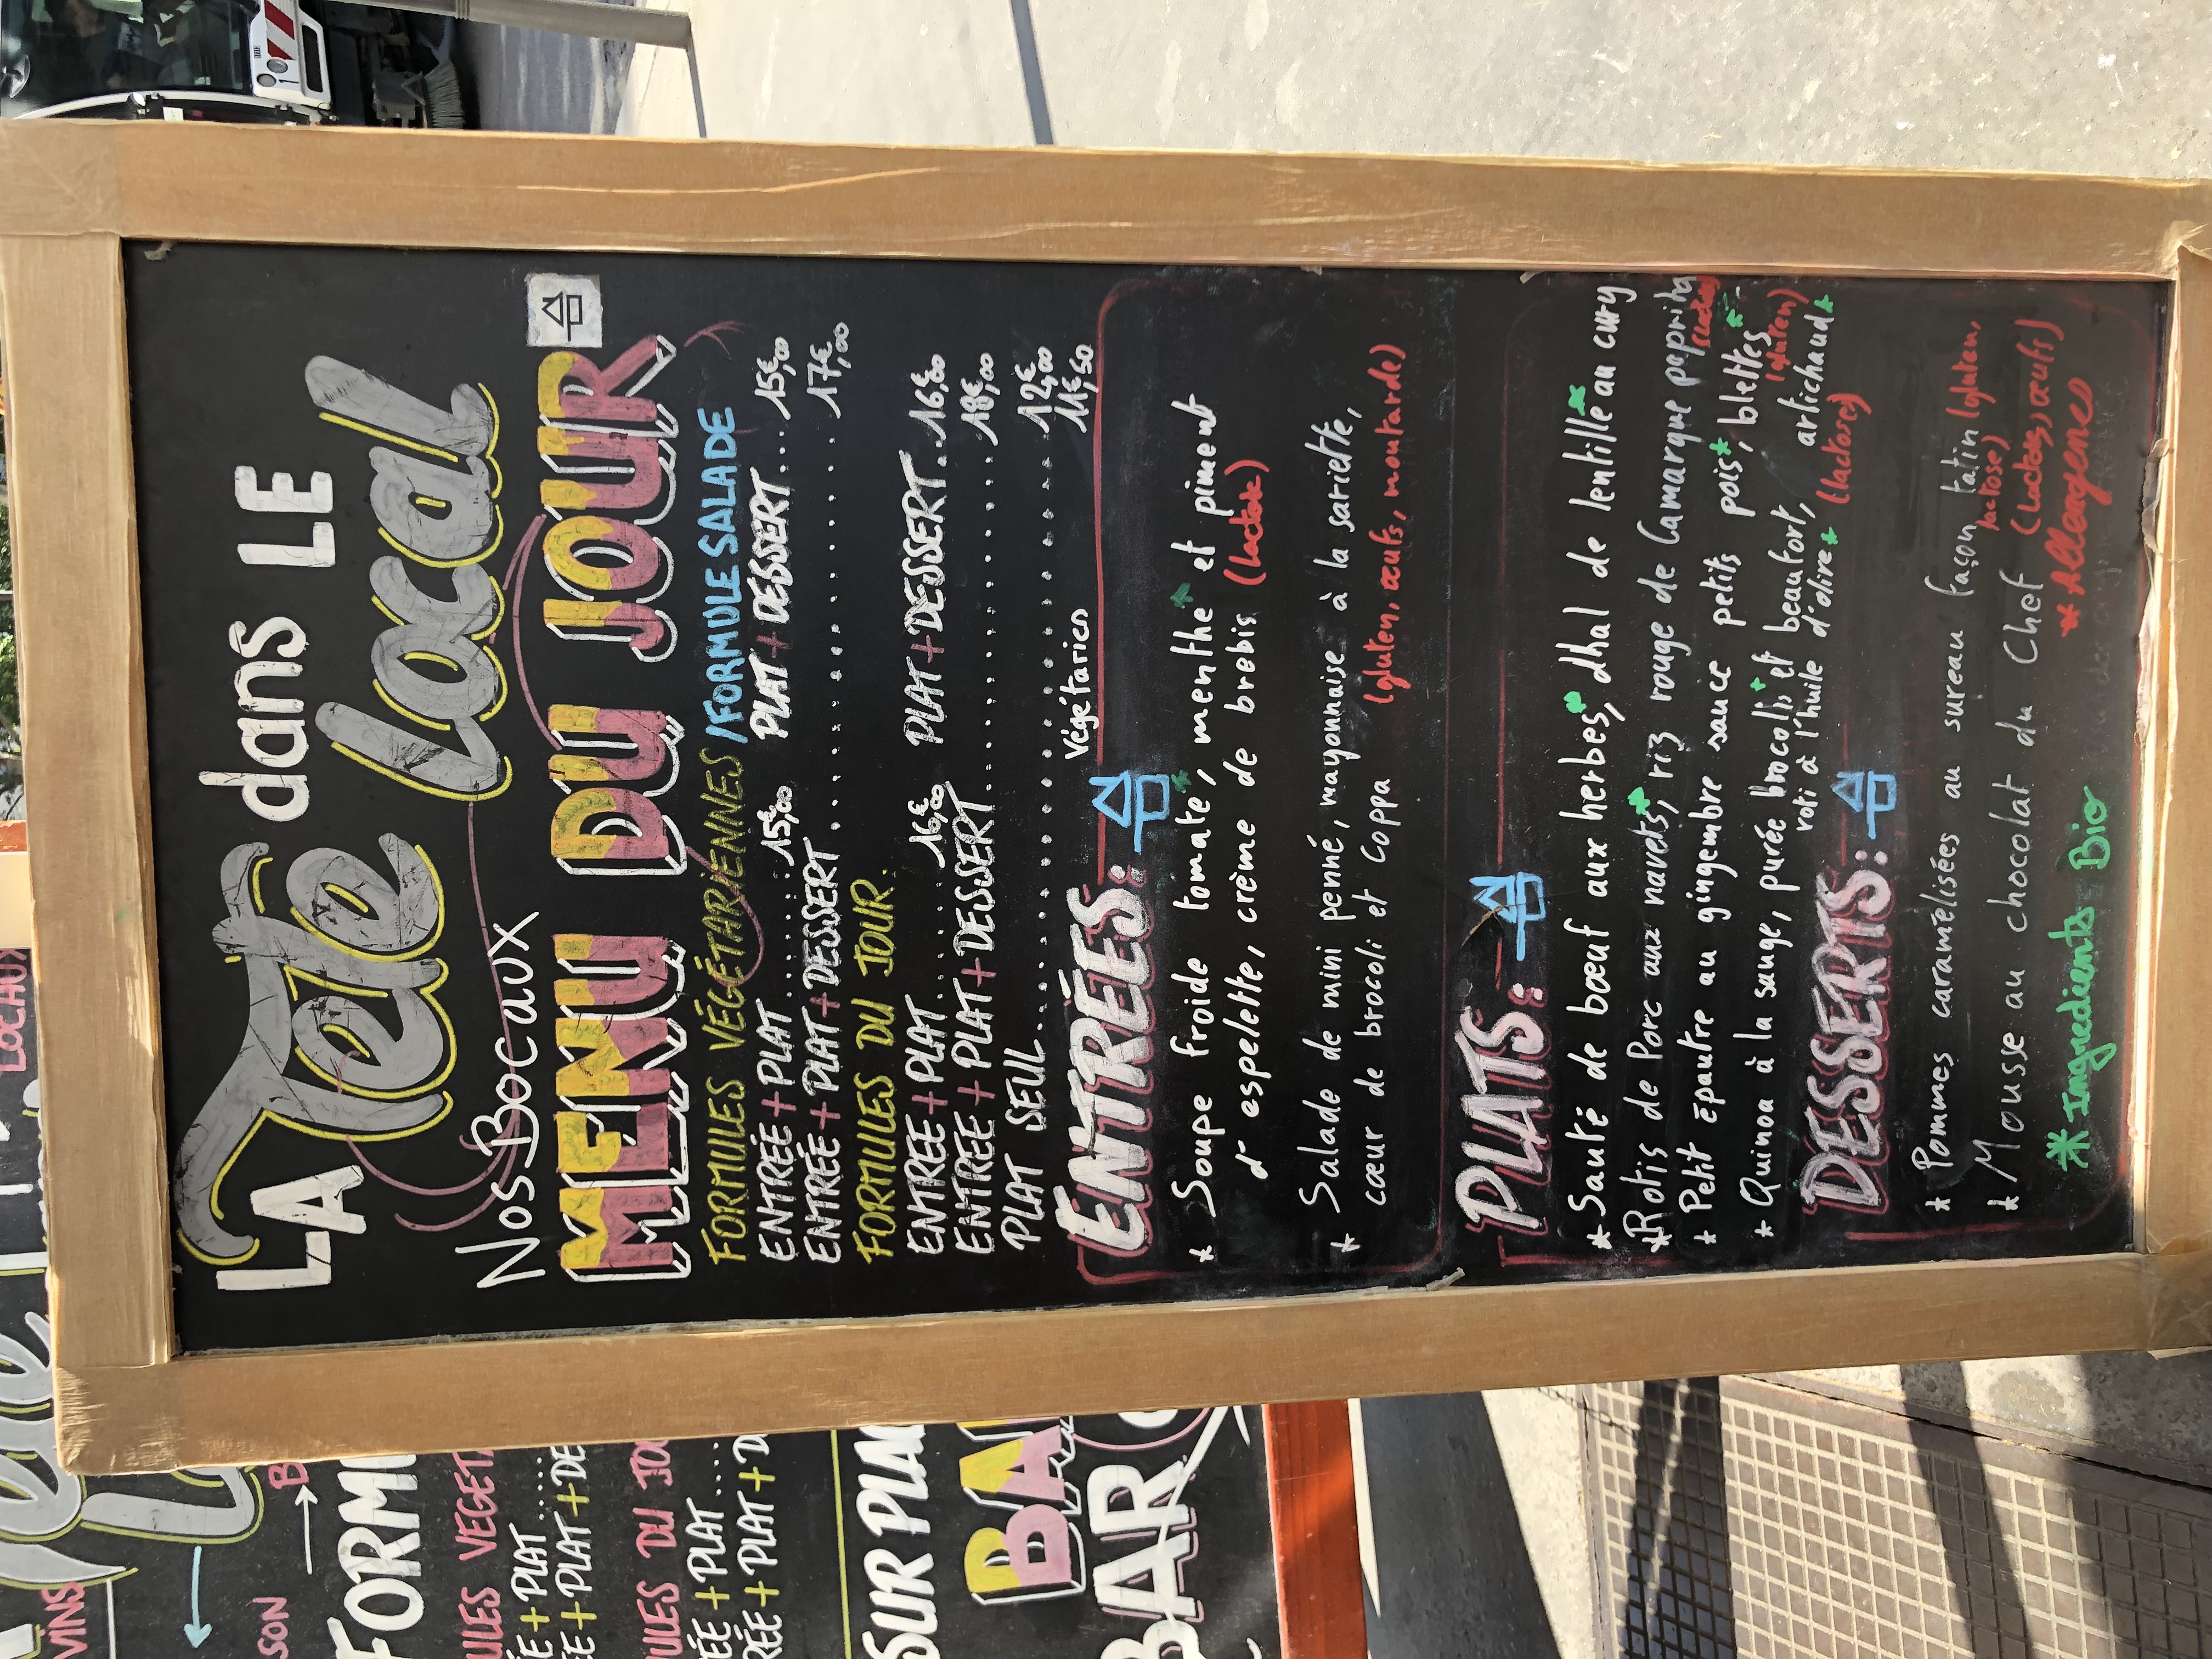 LA Tête dans LE
local
Nos Bocaux
MENU DU JOUR
FORMULES VÉGÉTARIENNES /FORMULE SALADE
ENTRÉE + PLAT.......15,€00 PLAT + DESSERT...15,€00
ENTRÉE + PLAT + DESSERT..................17,€00
FORMULES DU JOUR.
ENTREE + PLAT.......16,€00 PLAT + DESSERT..16,€00
ENTREE + PLAT + DESSERT..................18,€00
PLAT SEUL..............................12,€00
Végétarien 11,€50
ENTRÉES:
* Soupe froide tomate*, menthe* et piment
d'espelette, crème de brebis (lactose)
* Salade de mini penné, mayonnaise à la sariette,
cœur de brocoli et Coppa (gluten, œufs, moutarde)
PLATS:
* Sauté de bœuf aux herbes*, dhal de lentille* au cury
* Rotis de Porc aux navets*, riz rouge de Camargue paprika
* Petit épautre au gingembre sauce petits pois*, blettes* (gluten)
* Quinoa à la sauge, purée brocolis* et beaufort, artichaud*
roti à l'huile d'olive* (lactose)
DESSERTS:
* Pommes caramélisées au sureau façon tatin (gluten,
lactose)
* Mousse au chocolat du Chef (Lactose, œufs)
* Ingredients Bio * Allergenes
LOCAUX
VINS
SON
FORM
ULES VEGET
ÉE + PLAT....
ÉE + PLAT + DE
ULES DU JO
ÉE + PLAT....
RÉE + PLAT + D
SUR PLA
BA
BAR